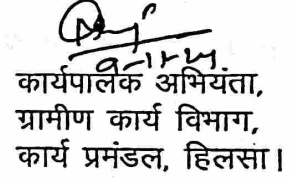 कार्यपालक अभियंता,
ग्रामीण कार्य विभाग,
कार्य प्रमंडल, हिलसा।